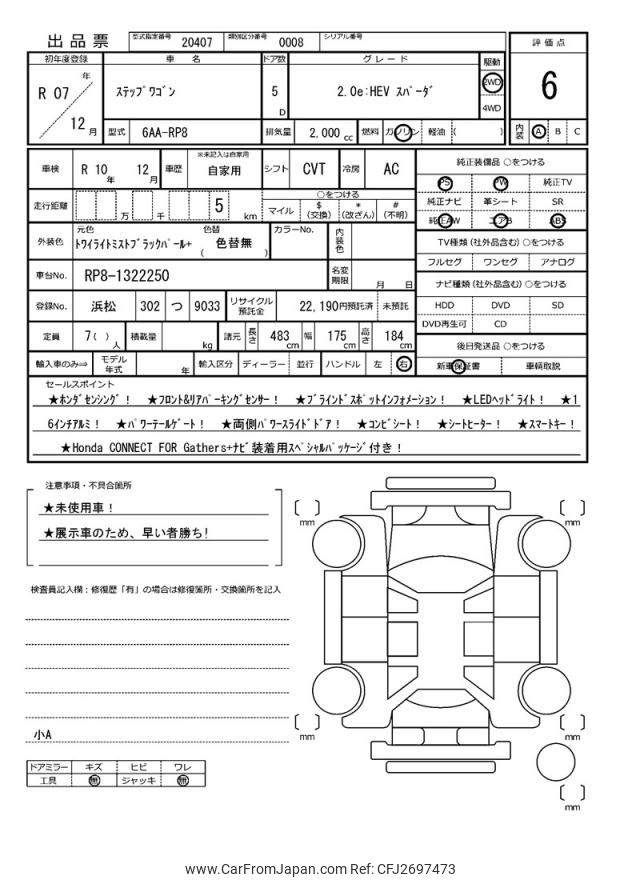 出品票 型式指定番号 20407 類別区分番号 0008 シリアル番号
評価点
6
内装 A B C
初年度登録 車名 ドア数 グレード 駆動
R 07 年 12 月 ステップワゴン 5 D 2.0e:HEV スパーダ 2WD 4WD
型式 6AA-RP8 排気量 2,000 cc 燃料 ガソリン 軽油 ( )
車検 R 10 年 12 月 車歴 ※未記入は自家用 自家用 シフト CVT 冷房 AC
走行距離 万 千 5 km ○をつける マイル $(交換) *(改ざん) #(不明)
外装色 元色 トワイライトミストブラックパール+ 色替 色替無 カラーNo. 内装色
車台No. RP8-1322250 名変期限 月 日
登録No. 浜松 302 つ 9033 リサイクル預託金 22,190円預託済 未預託
定員 7( )人 積載量 kg 諸元 長さ 483cm 幅 175cm 高さ 184cm
輸入車のみ⇒ モデル年式 年 輸入区分 ディーラー 並行 ハンドル 左 右
純正装備品 ○をつける
PS PW 純正TV
純正ナビ 革シート SR
純正AW エアB ABS
TV種類 (社外品含む) ○をつける
フルセグ ワンセグ アナログ
ナビ種類 (社外品含む) ○をつける
HDD DVD SD
DVD再生可 CD
後日発送品 ○をつける
新車保証書 車輌取説
セールスポイント
★ホンダセンシング！ ★フロント&リアパーキングセンサー！ ★ブラインドスポットインフォメーション！ ★LEDヘッドライト！ ★1
6インチアルミ！ ★パワーテールゲート！ ★両側パワースライドドア！ ★コンビシート！ ★シートヒーター！ ★スマートキー！
★Honda CONNECT FOR Gathers+ナビ装着用スペシャルパッケージ付き！
注意事項・不具合箇所
★未使用車！
★展示車のため、早い者勝ち!
検査員記入欄：修復歴「有」の場合は修復箇所・交換箇所を記入
小A
ドアミラー キズ ヒビ ワレ
工具 無 ジャッキ 無
mm
mm
mm
mm
mm
www.CarFromJapan.com Ref: CFJ2697473